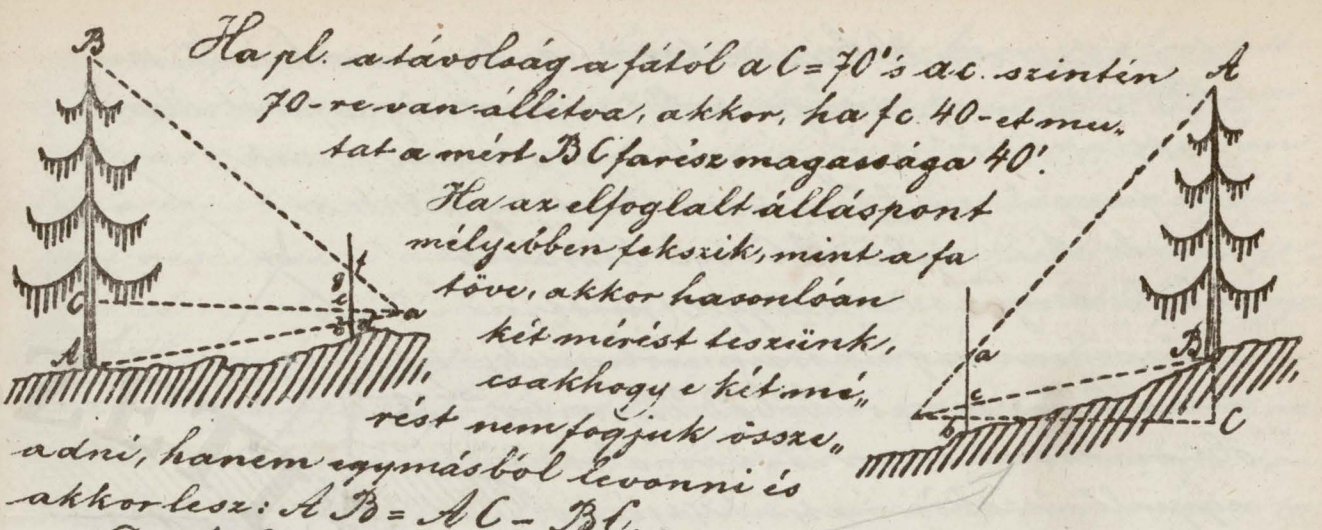 Ha pl. a távolság a fától a C = 70' s a c. szintén
70-re van állitva, akkor, ha fc. 40-et mu„
tat a mért BC farész magassága 40'.
Ha az elfoglalt álláspont
mélyebben fekszik, mint a fa
töve, akkor hasonlóan
két mérést teszünk,
csakhogy e két mé„
rést nem fogjuk össze„
adni, hanem egymásból levonni és
akkor lesz: AB = AC - BC
B
C
A
f
g
a
A
B
C
a
c
b